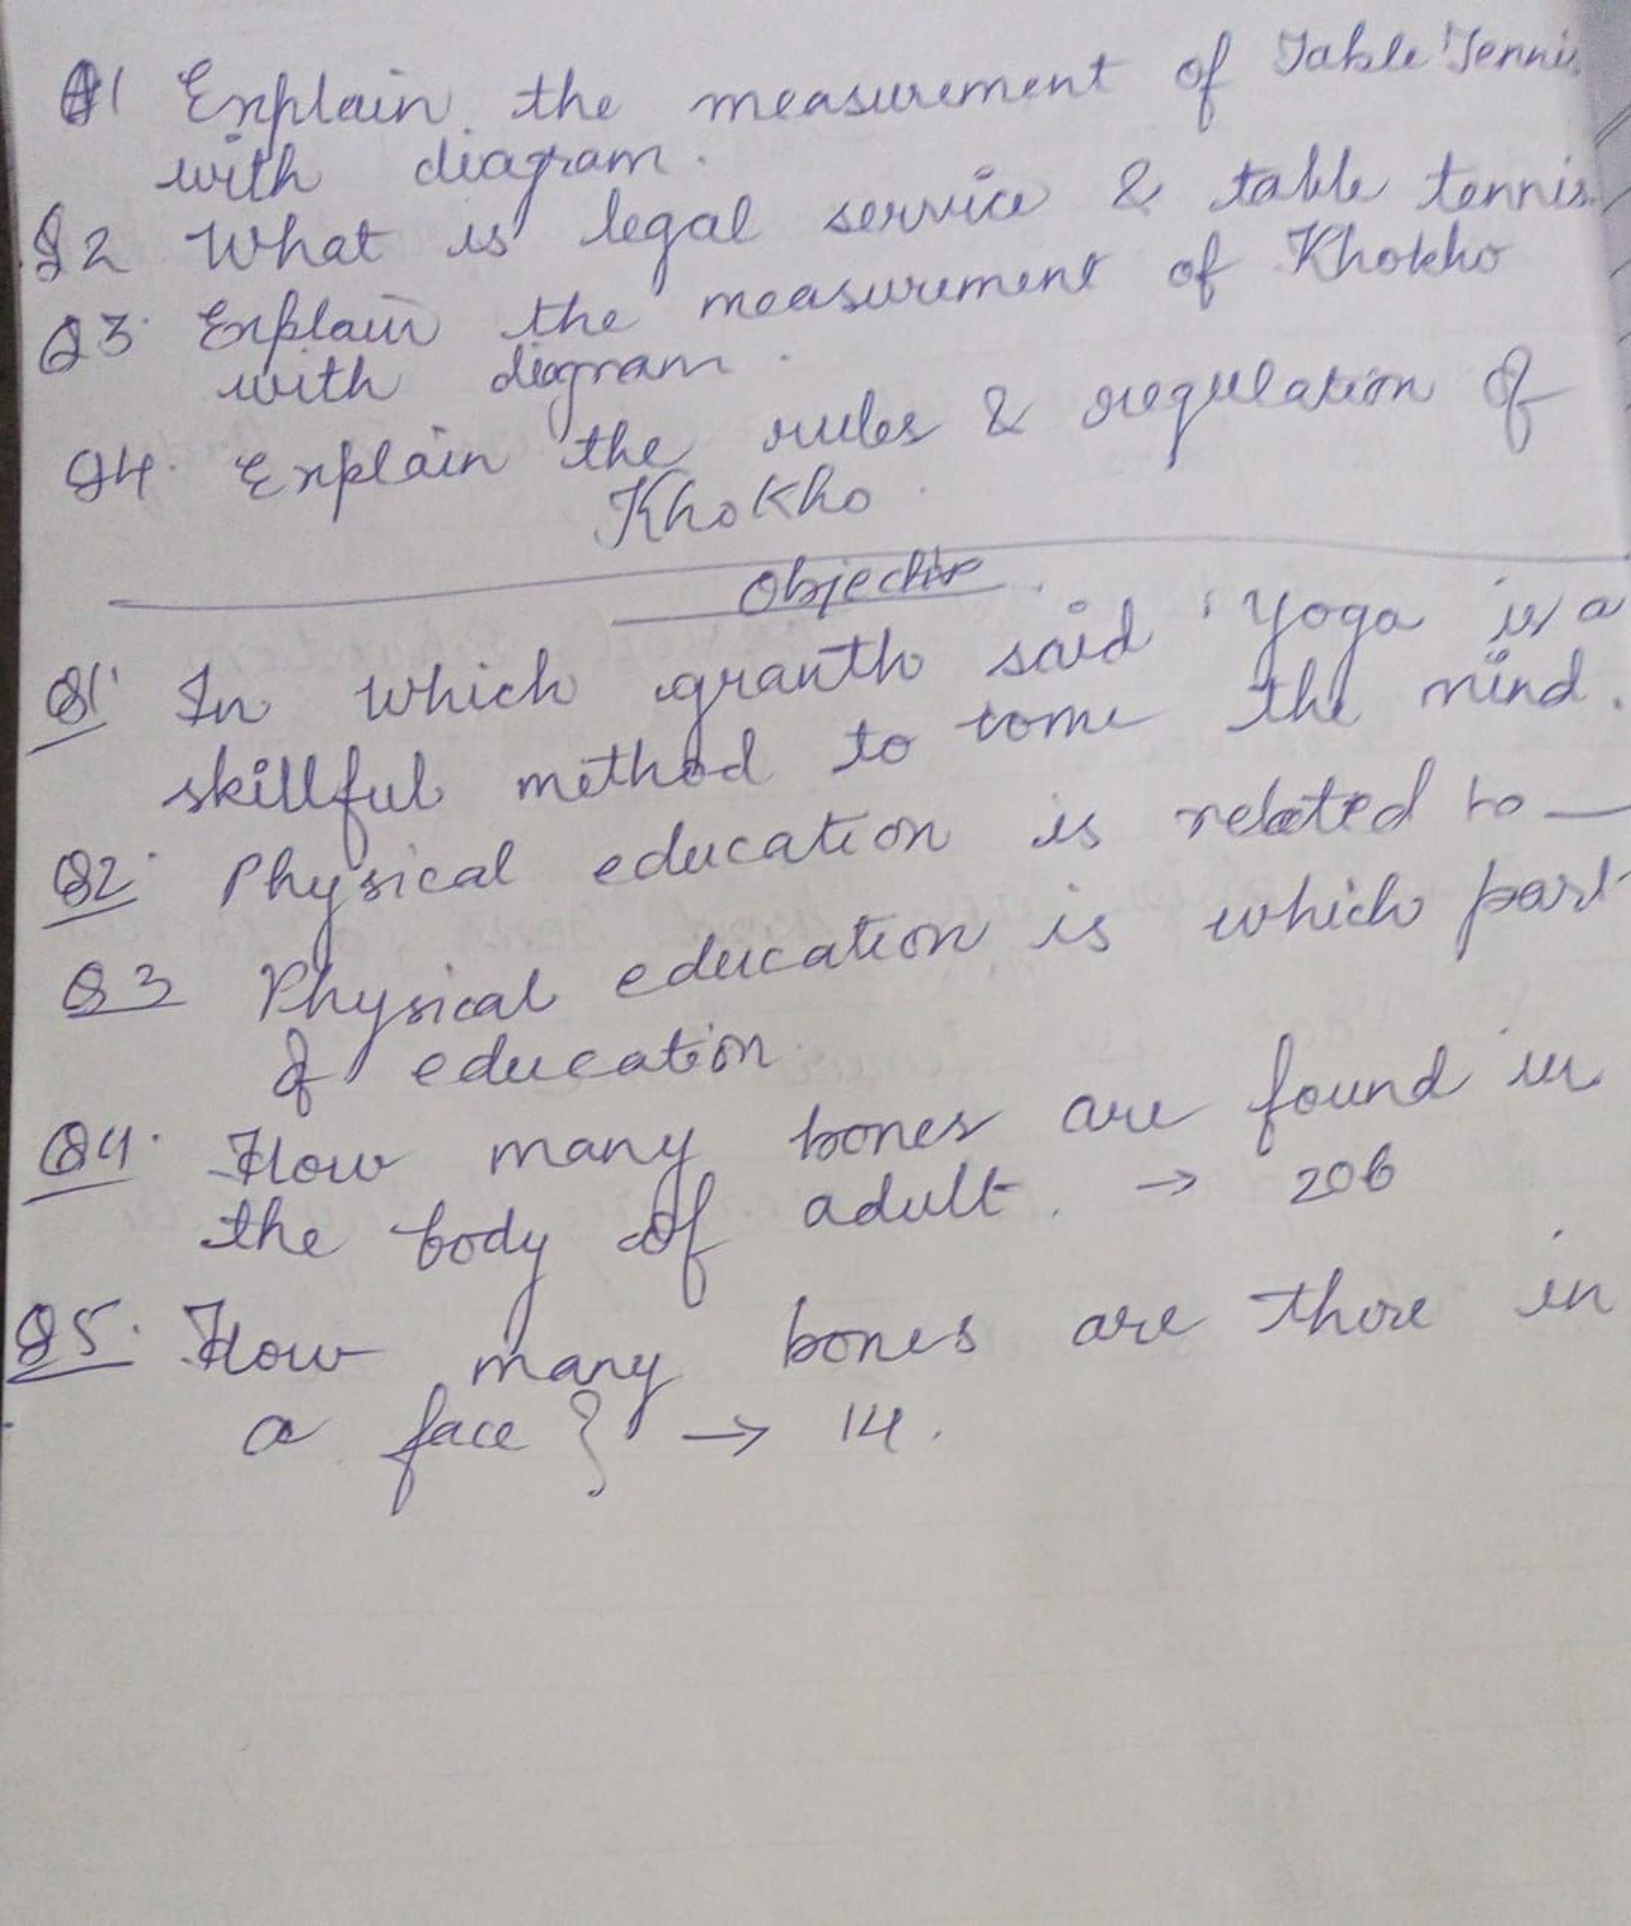 Q1 Explain the measurement of Table Tennis
with diagram.
Q2 What is legal service & table tennis.
Q3. Explain the measurement of Khokho
with diagram.
Q4. Explain the rules & regulation of
KhoKho.
Objective.
Q1. In which granth said 'Yoga is a
skillful method to tome the mind.
Q2. Physical education is related to —
Q3 Physical education is which part
of education.
Q4. How many bones are found in
the body of adult. → 206
Q5. How many bones are there in
a face } → 14.